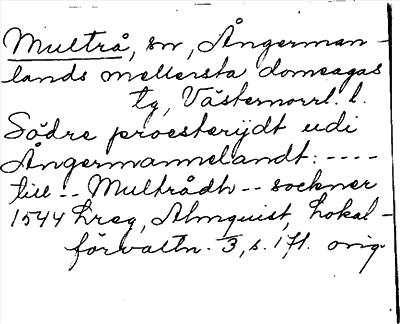 Multrå, sn, Ångerman-
lands mellersta domsagas
tg, Västernorrl. l.
Södre proesterijdt udi
Ångermannelandt: ----
till -- Multrådh -- sockner
1544 Lreg, Almquist, Lokal-
förvaltn. 3, s. 171. orig.